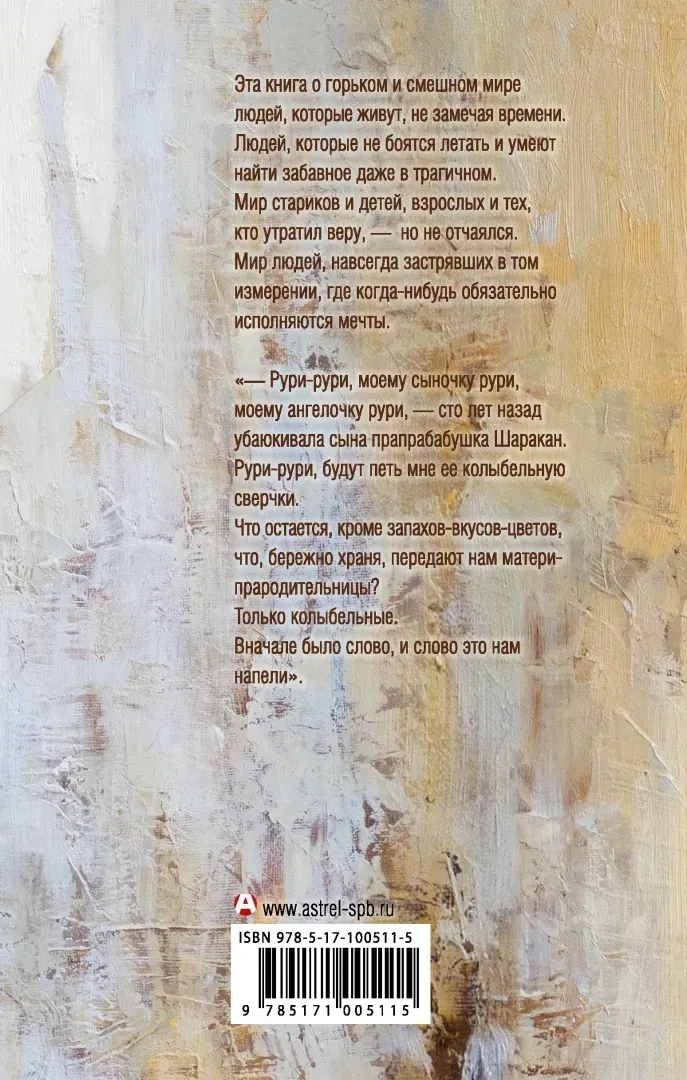 Эта книга о горьком и смешном мире
людей, которые живут, не замечая времени.
Людей, которые не боятся летать и умеют
найти забавное даже в трагичном.
Мир стариков и детей, взрослых и тех,
кто утратил веру, — но не отчаялся.
Мир людей, навсегда застрявших в том
измерении, где когда-нибудь обязательно
исполняются мечты.
«— Рури-рури, моему сыночку рури,
моему ангелочку рури, — сто лет назад
убаюкивала сына прапрабабушка Шаракан.
Рури-рури, будут петь мне ее колыбельную
сверчки.
Что остается, кроме запахов-вкусов-цветов,
что, бережно храня, передают нам матери-
прародительницы?
Только колыбельные.
Вначале было слово, и слово это нам
напели».
А www.astrel-spb.ru
ISBN 978-5-17-100511-5
9 785171 005115